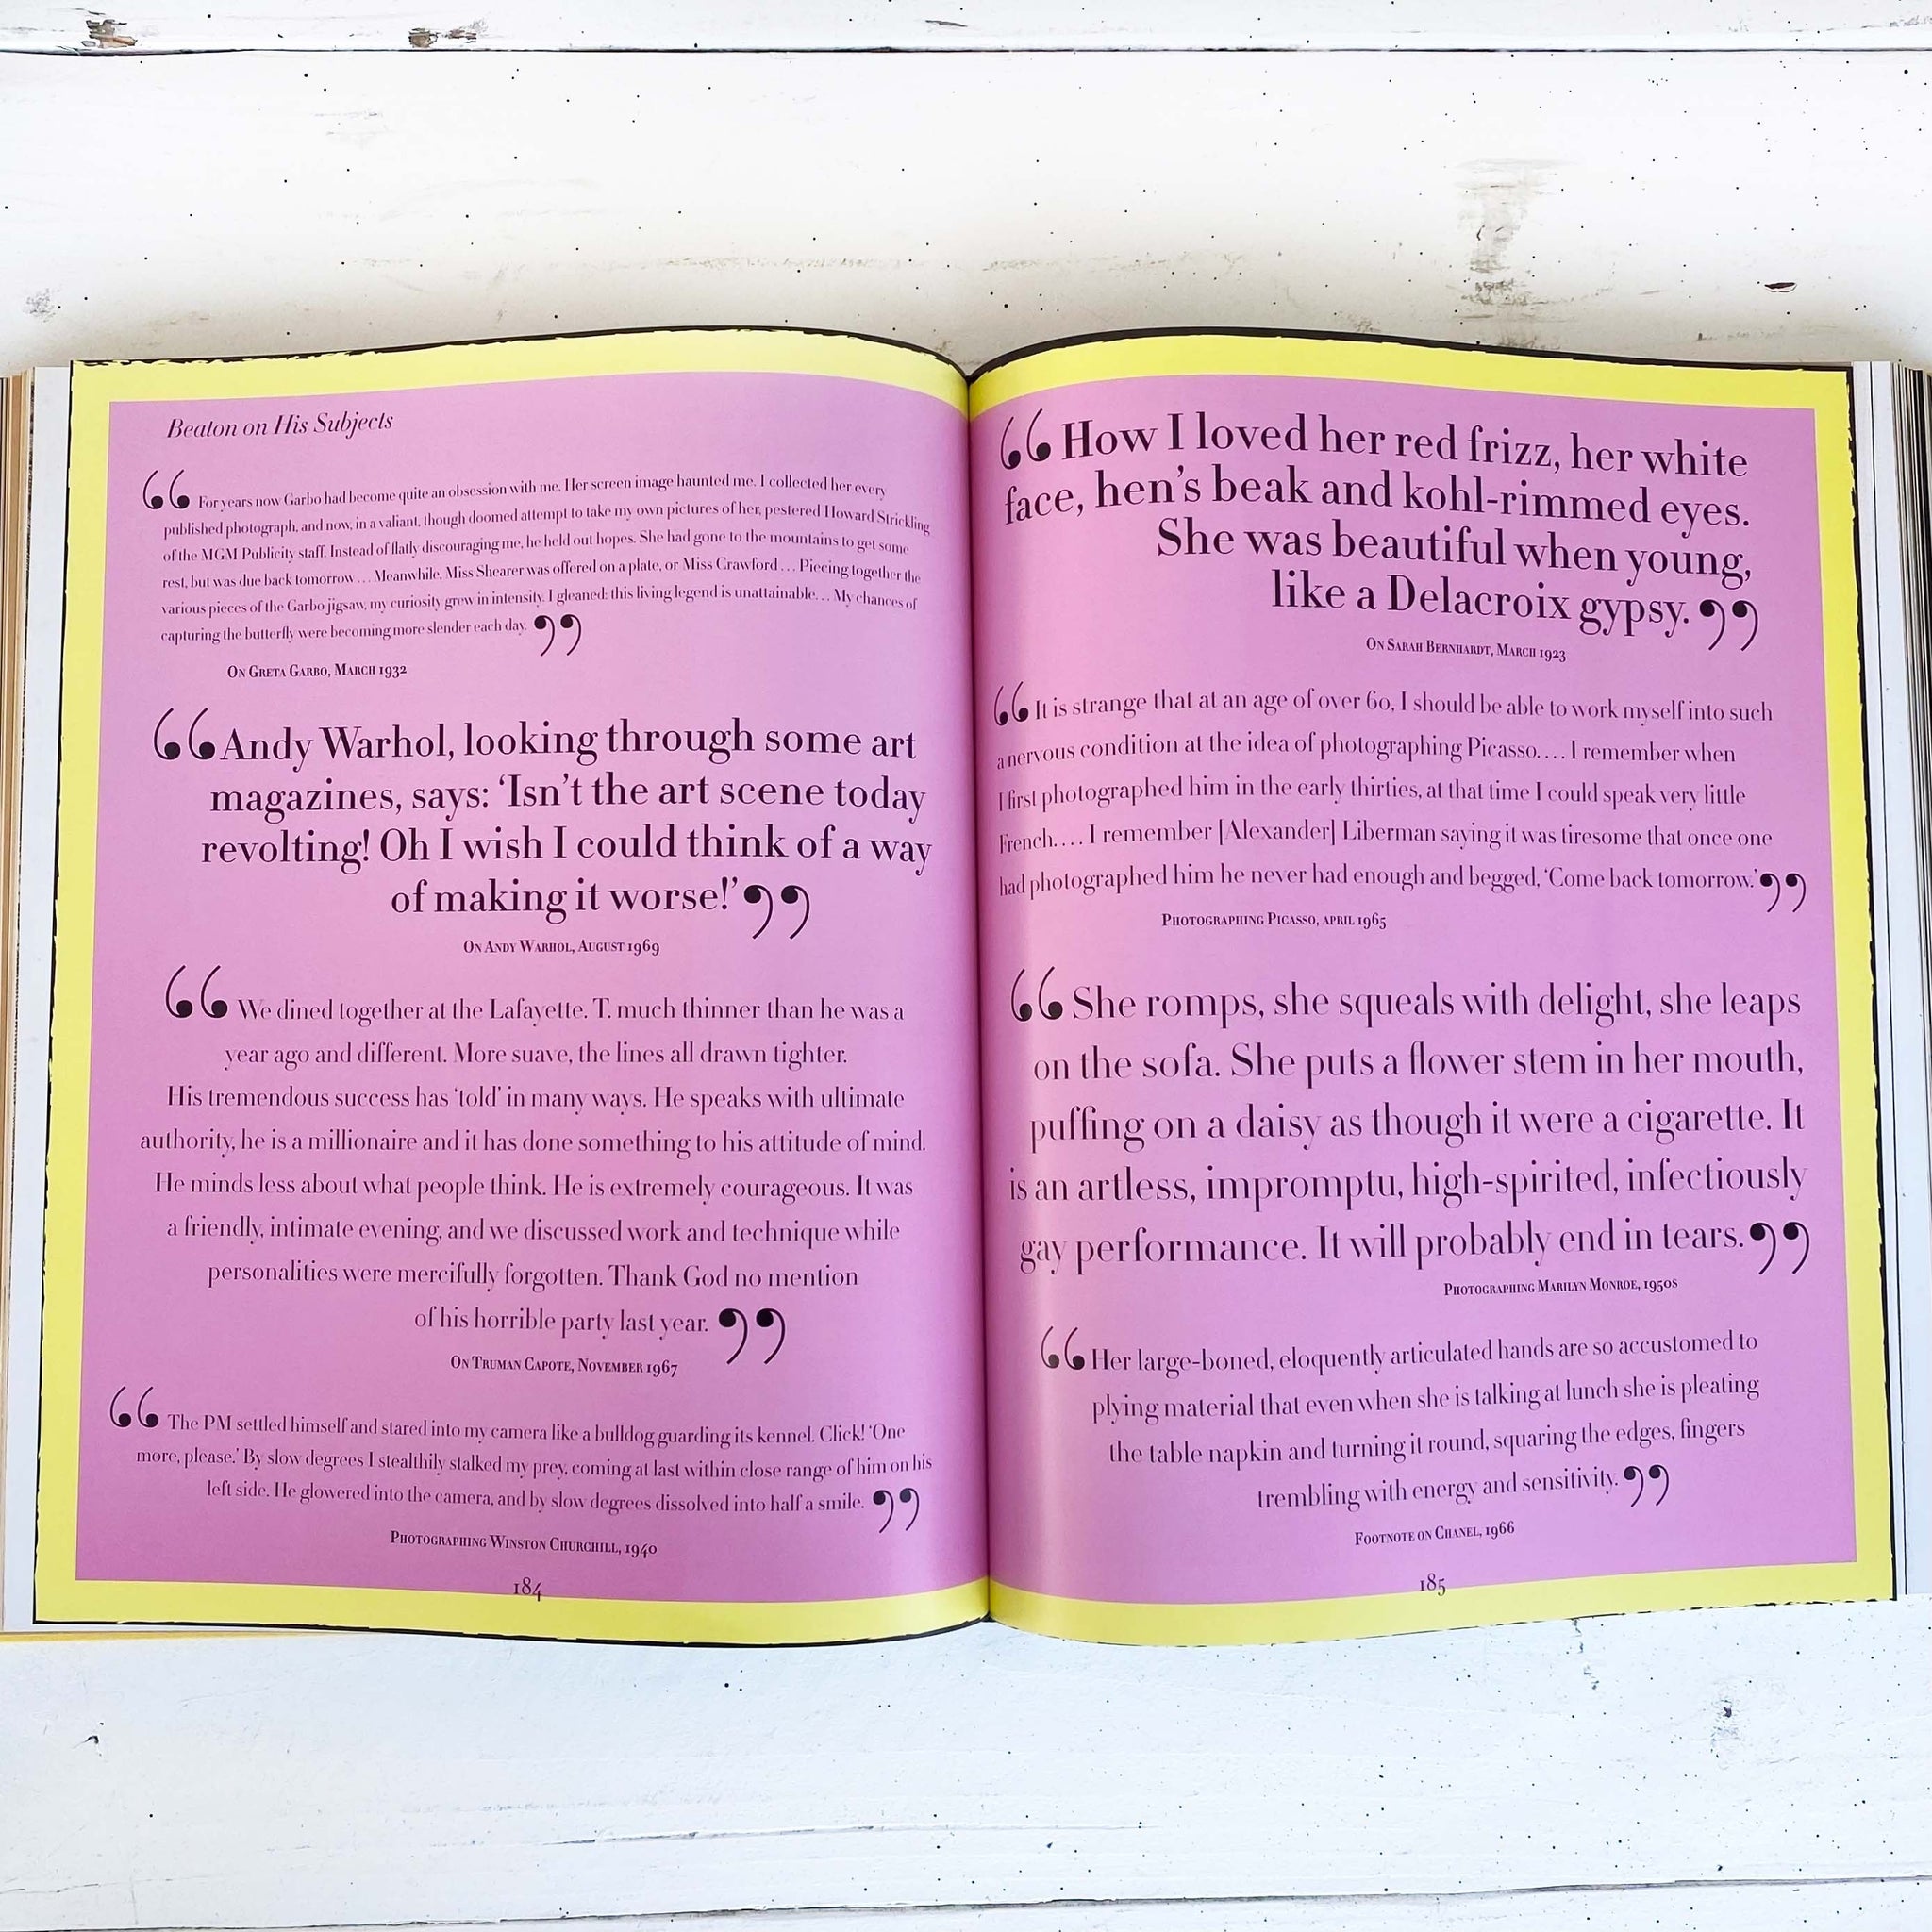 Beaton on His Subjects
“For years now Garbo had become quite an obsession with me. Her screen image haunted me. I collected her every
published photograph, and now, in a valiant, though doomed attempt to take my own pictures of her, pestered Howard Strickling
of the MGM Publicity staff. Instead of flatly discouraging me, he held out hopes. She had gone to the mountains to get some
rest, but was due back tomorrow … Meanwhile, Miss Shearer was offered on a plate, or Miss Crawford … Piecing together the
various pieces of the Garbo jigsaw, my curiosity grew in intensity. I gleaned: this living legend is unattainable… My chances of
capturing the butterfly were becoming more slender each day.”
On Greta Garbo, March 1932
“Andy Warhol, looking through some art
magazines, says: ‘Isn’t the art scene today
revolting! Oh I wish I could think of a way
of making it worse!’”
On Andy Warhol, August 1969
“We dined together at the Lafayette. T. much thinner than he was a
year ago and different. More suave, the lines all drawn tighter.
His tremendous success has ‘told’ in many ways. He speaks with ultimate
authority, he is a millionaire and it has done something to his attitude of mind.
He minds less about what people think. He is extremely courageous. It was
a friendly, intimate evening, and we discussed work and technique while
personalities were mercifully forgotten. Thank God no mention
of his horrible party last year.”
On Truman Capote, November 1967
“The PM settled himself and stared into my camera like a bulldog guarding its kennel. Click! ‘One
more, please.’ By slow degrees I stealthily stalked my prey, coming at last within close range of him on his
left side. He glowered into the camera, and by slow degrees dissolved into half a smile.”
Photographing Winston Churchill, 1940
184
“How I loved her red frizz, her white
face, hen’s beak and kohl-rimmed eyes.
She was beautiful when young,
like a Delacroix gypsy.”
On Sarah Bernhardt, March 1923
“It is strange that at an age of over 60, I should be able to work myself into such
a nervous condition at the idea of photographing Picasso…. I remember when
I first photographed him in the early thirties, at that time I could speak very little
French…. I remember [Alexander] Liberman saying it was tiresome that once one
had photographed him he never had enough and begged, ‘Come back tomorrow.’”
Photographing Picasso, april 1965
“She romps, she squeals with delight, she leaps
on the sofa. She puts a flower stem in her mouth,
puffing on a daisy as though it were a cigarette. It
is an artless, impromptu, high-spirited, infectiously
gay performance. It will probably end in tears.”
Photographing Marilyn Monroe, 1950s
“Her large-boned, eloquently articulated hands are so accustomed to
plying material that even when she is talking at lunch she is pleating
the table napkin and turning it round, squaring the edges, fingers
trembling with energy and sensitivity.”
Footnote on Chanel, 1966
185